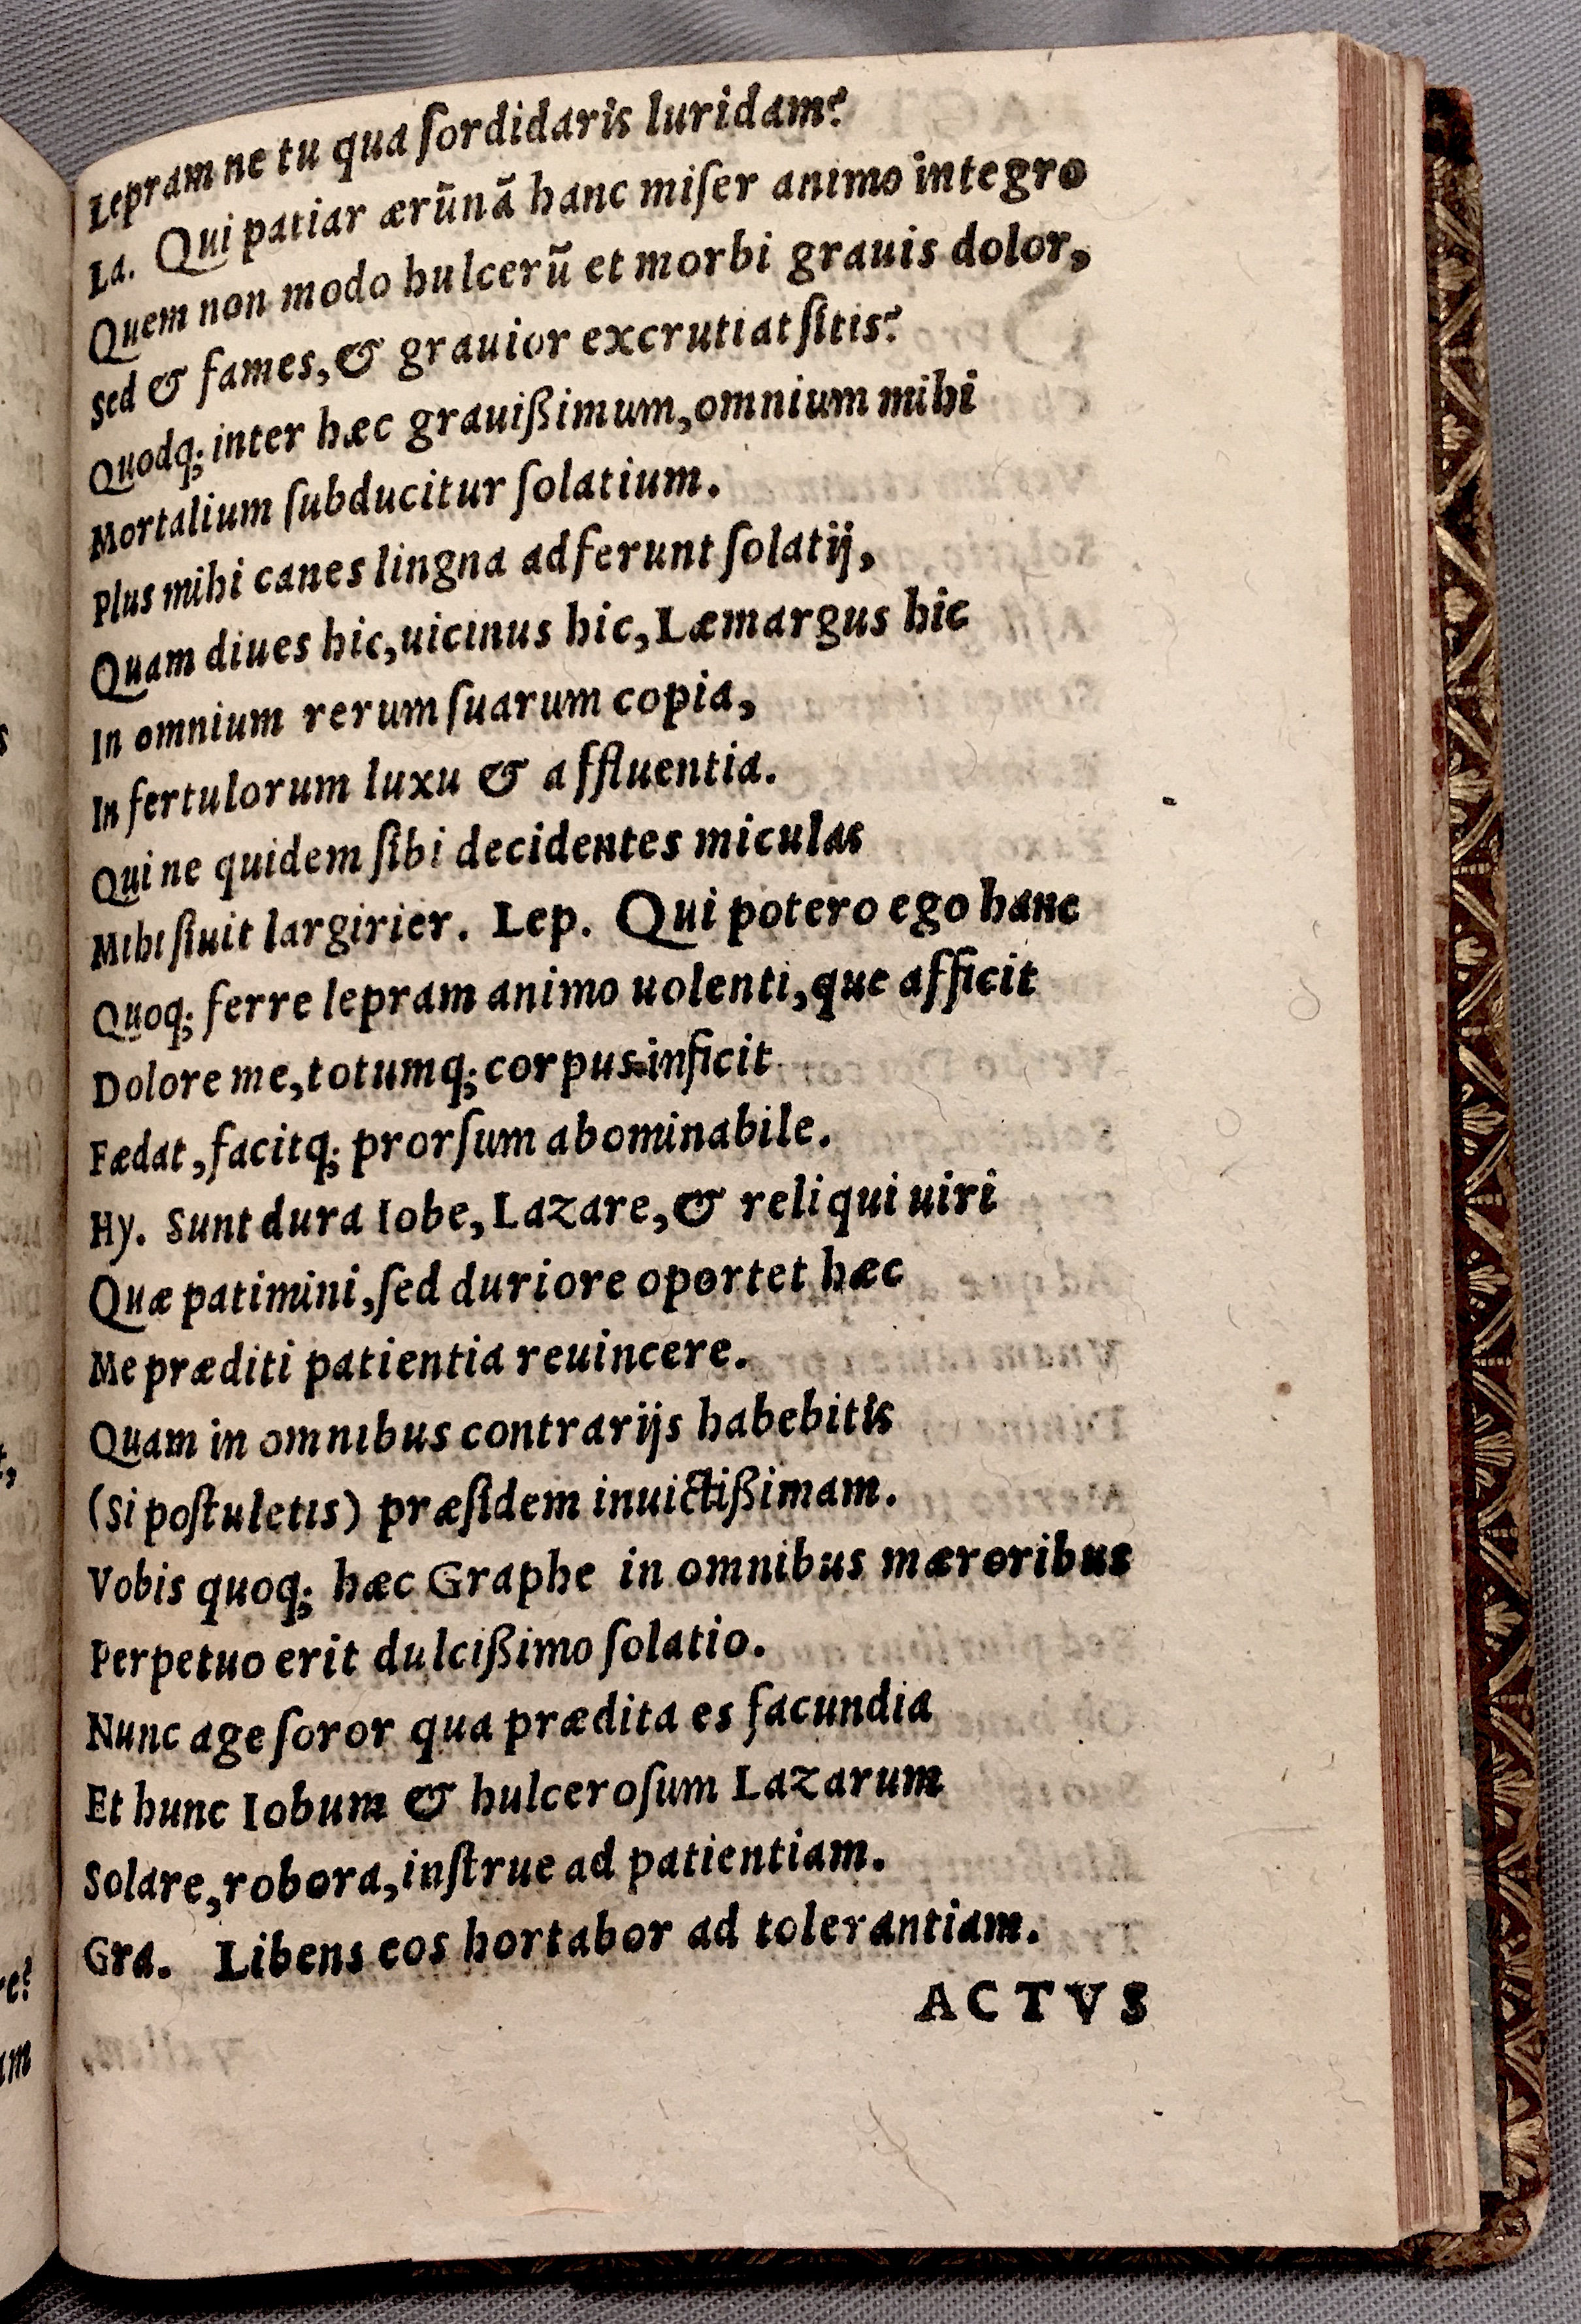 Lepram ne tu qua ſordidaris luridam?
La. Qui patiar ærūnā hanc miſer animo integro
Quem non modo hulcerū et morbi grauis dolor,
Sed & fames, & grauior excrutiat ſitis?
Quodq; inter hæc grauißimum, omnium mihi
Mortalium ſubducitur ſolatium.
Plus mihi canes lingna adferunt ſolatij,
Quam diues hic, uicinus hic, Læmargus hic
In omnium rerum ſuarum copia,
In fertulorum luxu & affluentia.
Qui ne quidem ſibi decidentes miculas
Mihi ſiuit largirier. Lep. Qui potero ego hanc
Quoq; ferre lepram animo uolenti, que afficit
Dolore me, totumq; corpus inficit
Fædat, facitq; prorſum abominabile.
Hy. Sunt dura Iobe, Lazare, & reliqui uiri
Quæ patimini, ſed duriore oportet hæc
Me præditi patientia reuincere.
Quam in omnibus contrarijs habebitis
(Si poſtuletis) præſidem inuictißimam.
Vobis quoq; hæc Graphe in omnibus mæroribus
Perpetuo erit dulcißimo ſolatio.
Nunc age ſoror qua prædita es facundia
Et hunc Iobum & hulceroſum Lazarum
Solare, robora, inſtrue ad patientiam.
Gra. Libens eos hortabor ad tolerantiam.
ACTVS